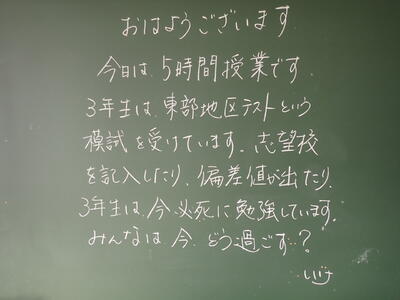 おはようございます
今日は、5時間授業です。
3年生は、東部地区テストという
模試を受けています。志望校
を記入したり、偏差値が出たり、
3年生は、今、必死に勉強しています。
みんなは、今、どう過ごす…？